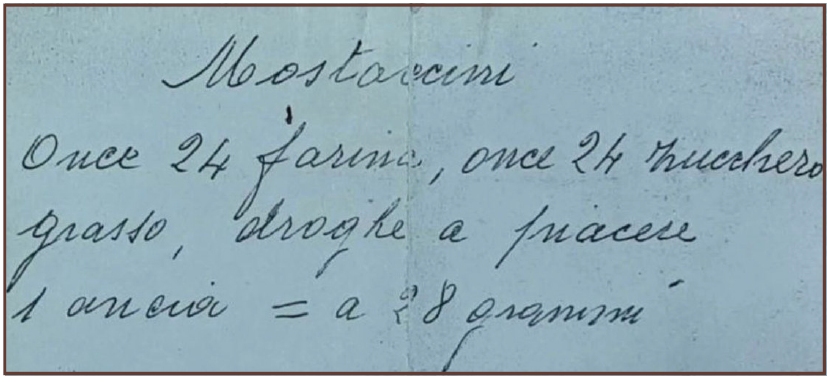 Mostaccini
Once 24 farina, once 24 zucchero
grasso, droghe a piacere
1 oncia = a 28 grammi